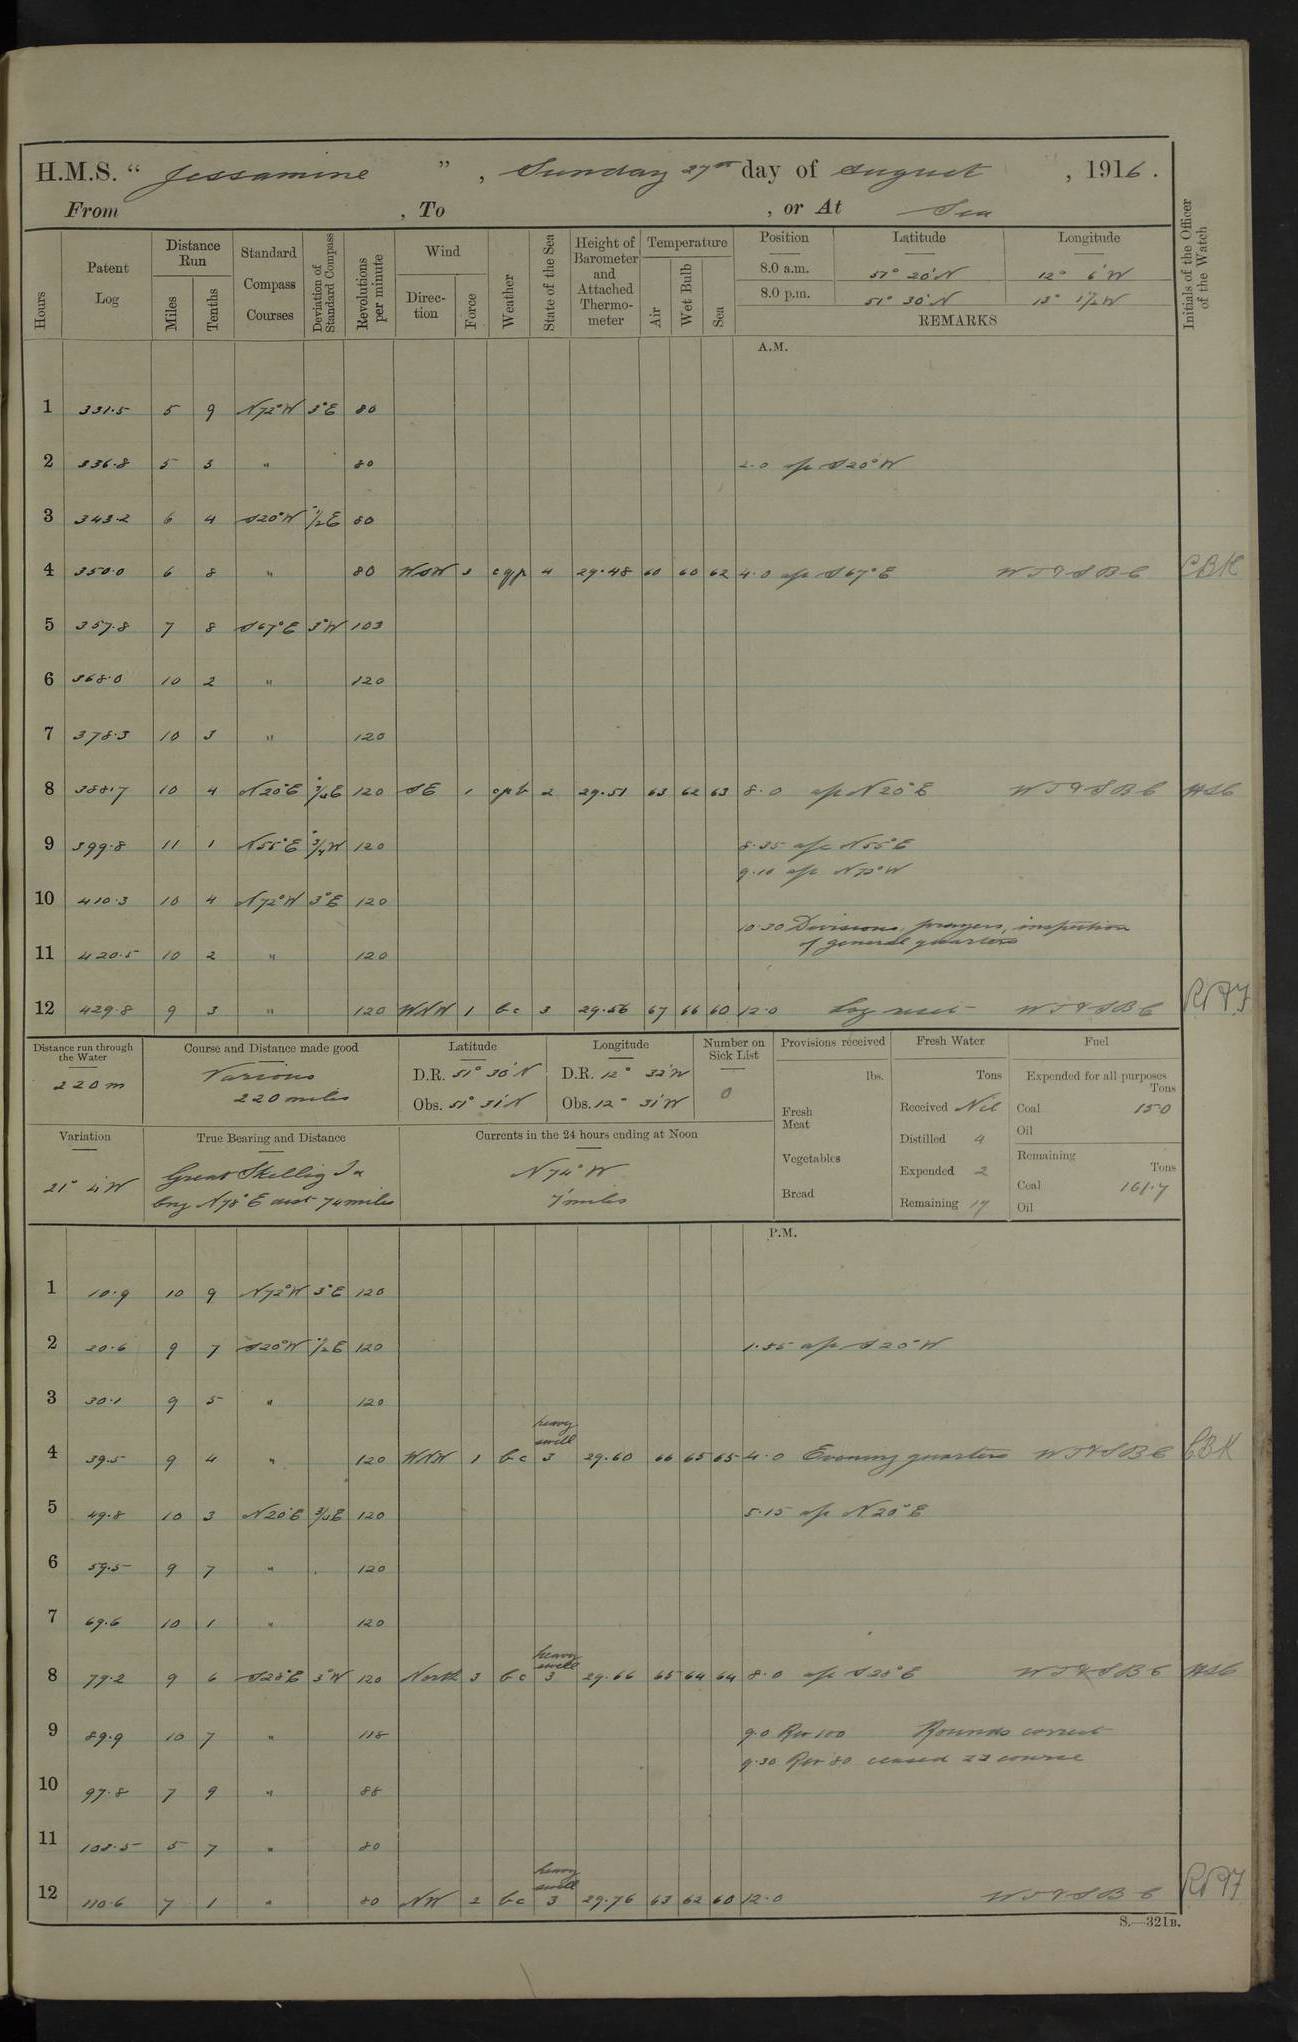 H.M.S. “ Jessamine ” , Sunday 27th day of August , 1916 .
From , To , or At Sea
Hours Patent Log Distance Run Miles Tenths Standard Compass Courses Deviation of Standard Compass Revolutions per minute Wind Direction Force Weather State of the Sea Height of Barometer and Attached Thermometer Temperature Air Wet Bulb Sea Position Latitude Longitude Initials of the Officer of the Watch
8.0 a.m. 51° 20' N 12° 6' W
8.0 p.m. 51° 30' N
REMARKS
A.M.
1 331.5 5 9 N72°W 3°E 80
2 336.8 5 3 " 80 2.0 a/c S20°W
3 343.2 6 4 S20°W ½°E 80
4 350.0 6 8 " 80 WSW 3 cqp 4 29.48 60 60 62 4.0 a/c S67°E WT&SBC CBK
5 357.8 7 8 S67°E 3°W 103
6 368.0 10 2 " 120
7 378.3 10 3 " 120
8 388.7 10 4 N20°E E 120 SE 1 2 29.51 63 62 63 8.0 a/c N20°E WT&SBC
9 399.8 11 1 N55°E ¾°W 120 8.35 a/c N55°E
9.10 a/c N72°W
10 410.3 10 4 N72°W 3°E 120
10.30 Divisions, prayers, inspection
of general quarters
11 420.5 10 2 " 120
12 429.8 9 3 " 120 WNW 1 bc 3 29.56 67 66 60 12.0 Log reset WT&SBC
Distance run through the Water Course and Distance made good Latitude Longitude Number on Sick List Provisions received Fresh Water Fuel
220m Various 220 miles D.R. 51° 30' N D.R. 12° 32' W 0 lbs. Tons Expended for all purposes Tons
Obs. 51° 31' N Obs. 12° 31' W Fresh Meat Received Nil Coal 15.0
Oil
Variation True Bearing and Distance Currents in the 24 hours ending at Noon Distilled 4 Remaining Tons
21° W Great Skellig Is N74°W Vegetables Expended 2 Coal 161.7
brg N78°E dist 74 miles 7 miles Bread Remaining 19 Oil
P.M.
1 10.9 10 9 N72°W 3°E 120
2 20.6 9 7 S20°W ½°E 120 1.55 a/c S20°W
3 30.1 9 5 " 120
heavy swell
4 39.5 9 4 " 120 WNW 1 bc 3 29.60 66 65 65 4.0 Evening quarters WT&SBC CBK
5 49.8 10 3 N20°E E 120 5.15 a/c N20°E
6 59.5 9 7 " 120
7 69.6 10 1 " 120
heavy swell
8 79.2 9 6 S20°E 3°W 120 North 3 bc 3 29.66 65 64 64 8.0 a/c S20°E WT&SBC
9 89.9 10 7 " 118 9.0 Rev 100 Rounds correct
9.30 Rev 80 ceased zz course
10 97.8 7 9 " 88
11 103.5 5 7 " 80
heavy swell
12 110.6 7 1 " 80 NW 2 bc 3 29.76 63 62 60 12.0 WT&SBC
S.—321B.